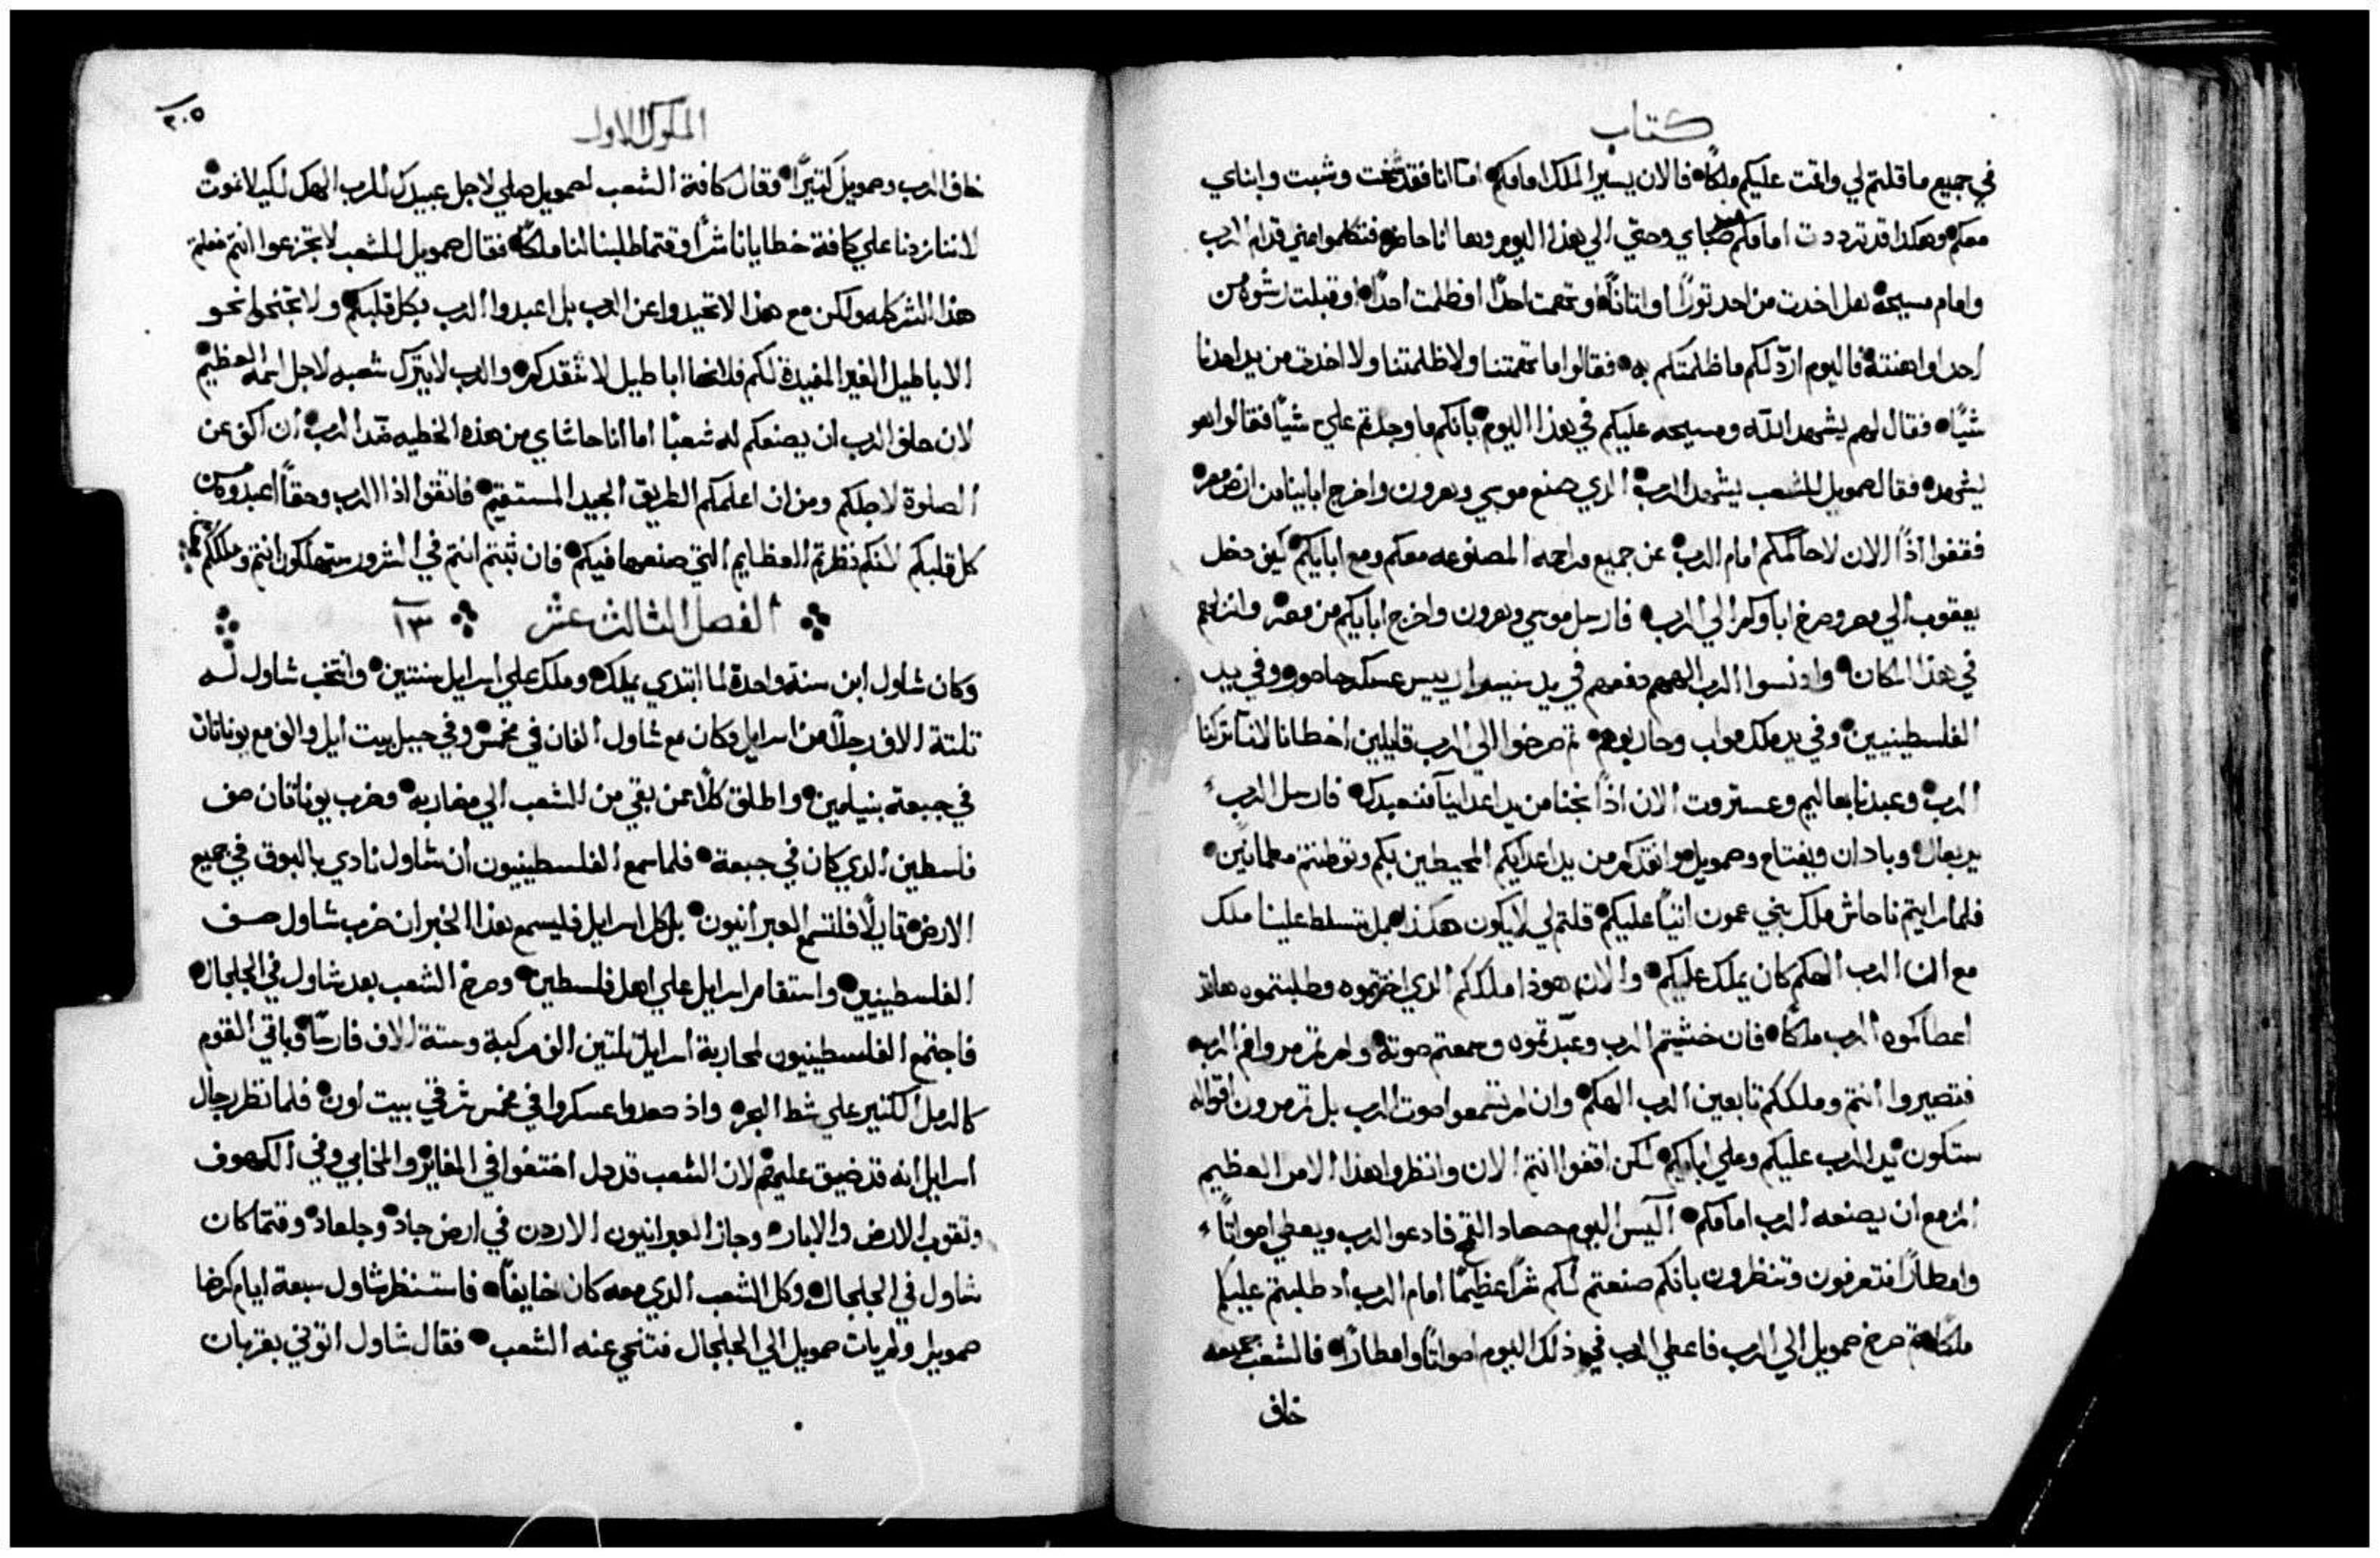 كتاب
في جميع ما قلتم لي واقمت عليكم ملكًا فالان يسير الملك امامكم اما انا فقد شخت وشبت وابناي
معكم وهكدا قد ترددت امامكم من صباي وحتي الي هذا اليوم وها انا حاضر فتكلموا عني قدام الرب
وامام مسيحه هل اخدت من احد تورًا او اتانًا او تهمت احدًا او ظلمت احدًا او قبلت رشوه من
احد واهنته فاليوم اردّ لكم ما ظلمتكم به فقالوا ما تهمتنا ولا ظلمتنا ولا اخدت من يد احدنا
شيًا فقال لهم يشهد الله ومسيحه عليكم في هذا اليوم بانكم ما وجدتم علي شيًا فقالوا هو
يشهد فقال صمويل للشعب يشهد الرب الدي صنع موسي وهرون واخرج ابايينا من ارض مصر
فقفوا اذًا الان لاحاكمكم امام الرب عن جميع مراحمه المصنوعه معكم ومع ابايكم كيف دخل
يعقوب الي مصر وصرخ اباوكم الي الرب فارسل موسي وهرون واخرج ابايكم من مصر وانزلهم
في هذا المكان واد نسوا الرب الههم دفعهم في يد سيسرا رييس عسكر حاصور وفي يد
الفلسطينيين وفي يد ملك مواب وحاربوهم تم صرخوا الي الرب قايلين اخطانا لاننا تركنا
الرب وعبدنا بعاليم وعستروت الان اذًا نجنا من يد اعداينا فنعبدك فارسل الرب
يربعال وبادان ويفتاح وصمويل وانقدكم من يد اعدايكم المحيطين بكم وتوطنتم مطمانين
فلما رايتم ناحاش ملك بني عمون اتيًا عليكم قلتم لي لا يكون هكذا بل يتسلط علينا ملك
مع ان الرب الهكم كان يملك عليكم والان هودا ملككم الدي اخترتموه وطلبتموه هاقد
اعطاكموه الرب ملكًا فان خشيتم الرب وعبدتموه وسمعتم صوته ولم تمرمروا فم الرب
فتصيروا انتم وملككم تابعين الرب الهكم وان لم تسمعوا صوت الرب بل تمرمرون اقواله
ستكون يد الرب عليكم وعلي ابايكم لكن اقفوا انتم الان وانظروا هذا الامر العظيم
المزمع ان يصنعه الرب امامكم اليس اليوم حصاد القمح فادعو الرب ويعطي اصواتًا
وامطارًا فتعرفون وتنظرون بانكم صنعتم لكم شرًا عظيمًا امام الرب اد طلبتم عليكم
ملكًا تم صرخ صمويل الي الرب فاعطي الرب في ذلك اليوم اصواتًا وامطارًا فالشعب جميعه
خاف
الملوك الاول
٢٠٥
خاف الرب وصمويل كتيرًا وقال كافة الشعب لصمويل صلي لاجل عبيدك للرب الهك لكيلا نموت
لاننا زدنا علي كافة خطايانا شرًا وقتما طلبنا لنا ملكًا فقال صمويل للشعب لا تجزعوا انتم فعلتم
هذا الشر كله ولكن مع هذا لا تحيدوا عن الرب بل اعبدوا الرب بكل قلبكم ولا تجنحوا نحو
الاباطيل الغير المفيدة لكم فلانها اباطيل لا تنقدكم والرب لا يترك شعبه لاجل اسمه العظيم
لان حلف الرب ان يصنعكم له شعبًا اما انا حاشاي من هذه الخطيه ضد الرب ان اكف عن
الصلوة لاجلكم ومن ان اعلمكم الطريق الجيد المستقيم فاتقوا اذا الرب وحقًا اعبدوه من
كل قلبكم لانكم نظرتم العظايم التي صنعها فيكم فان ثبتم انتم في الشرور ستهلكون انتم وملككم
الفصل الثالث عشر ١٣
وكان شاول ابن سنة واحدة لما ابتدي يملك وملك علي اسرايل سنتين وانتخب شاول له
تلتة الاف رجلًا من اسرايل وكان مع شاول الفان في مخمس وفي جبل بيت ايل والف مع يوناتان
في جبعة بنيامين واطلق كلًا ممن بقي من الشعب الي مضاربه وضرب يوناتان صف
فلسطين الدي كان في جبعة فلما سمع الفلسطينيون ان شاول نادي بالبوق في جميع
الارض قايلًا فلتسمع العبرانيون بل كل اسرايل فليسمع هذا الخبر ان ضرب شاول صف
الفلسطينيين واستقام اسرايل علي اهل فلسطين وصرخ الشعب بعد شاول في الجلجال
فاجتمع الفلسطينيون لمحاربة اسرايل تلتين الف مركبة وستة الاف فارسًا وباقي القوم
كالرمل الكثير علي شط البحر واذ صعدوا عسكروا في مخمس شرقي بيت اون فلما نظر رجال
اسرايل انه قد ضيق عليهم لان الشعب قد دل اختفوا في المغاير والمخابي وفي الكهوف
ونقوب الارض والابار وجاز العبرانيون الاردن في ارض جاد وجلعاد وقتما كان
شاول في الجلجال وكل الشعب الدي معه كان خايفًا فاستنظر شاول سبعة ايام كرضا
صمويل ولم يات صمويل الي الجلجال فتنحي عنه الشعب فقال شاول اتوني بقربان